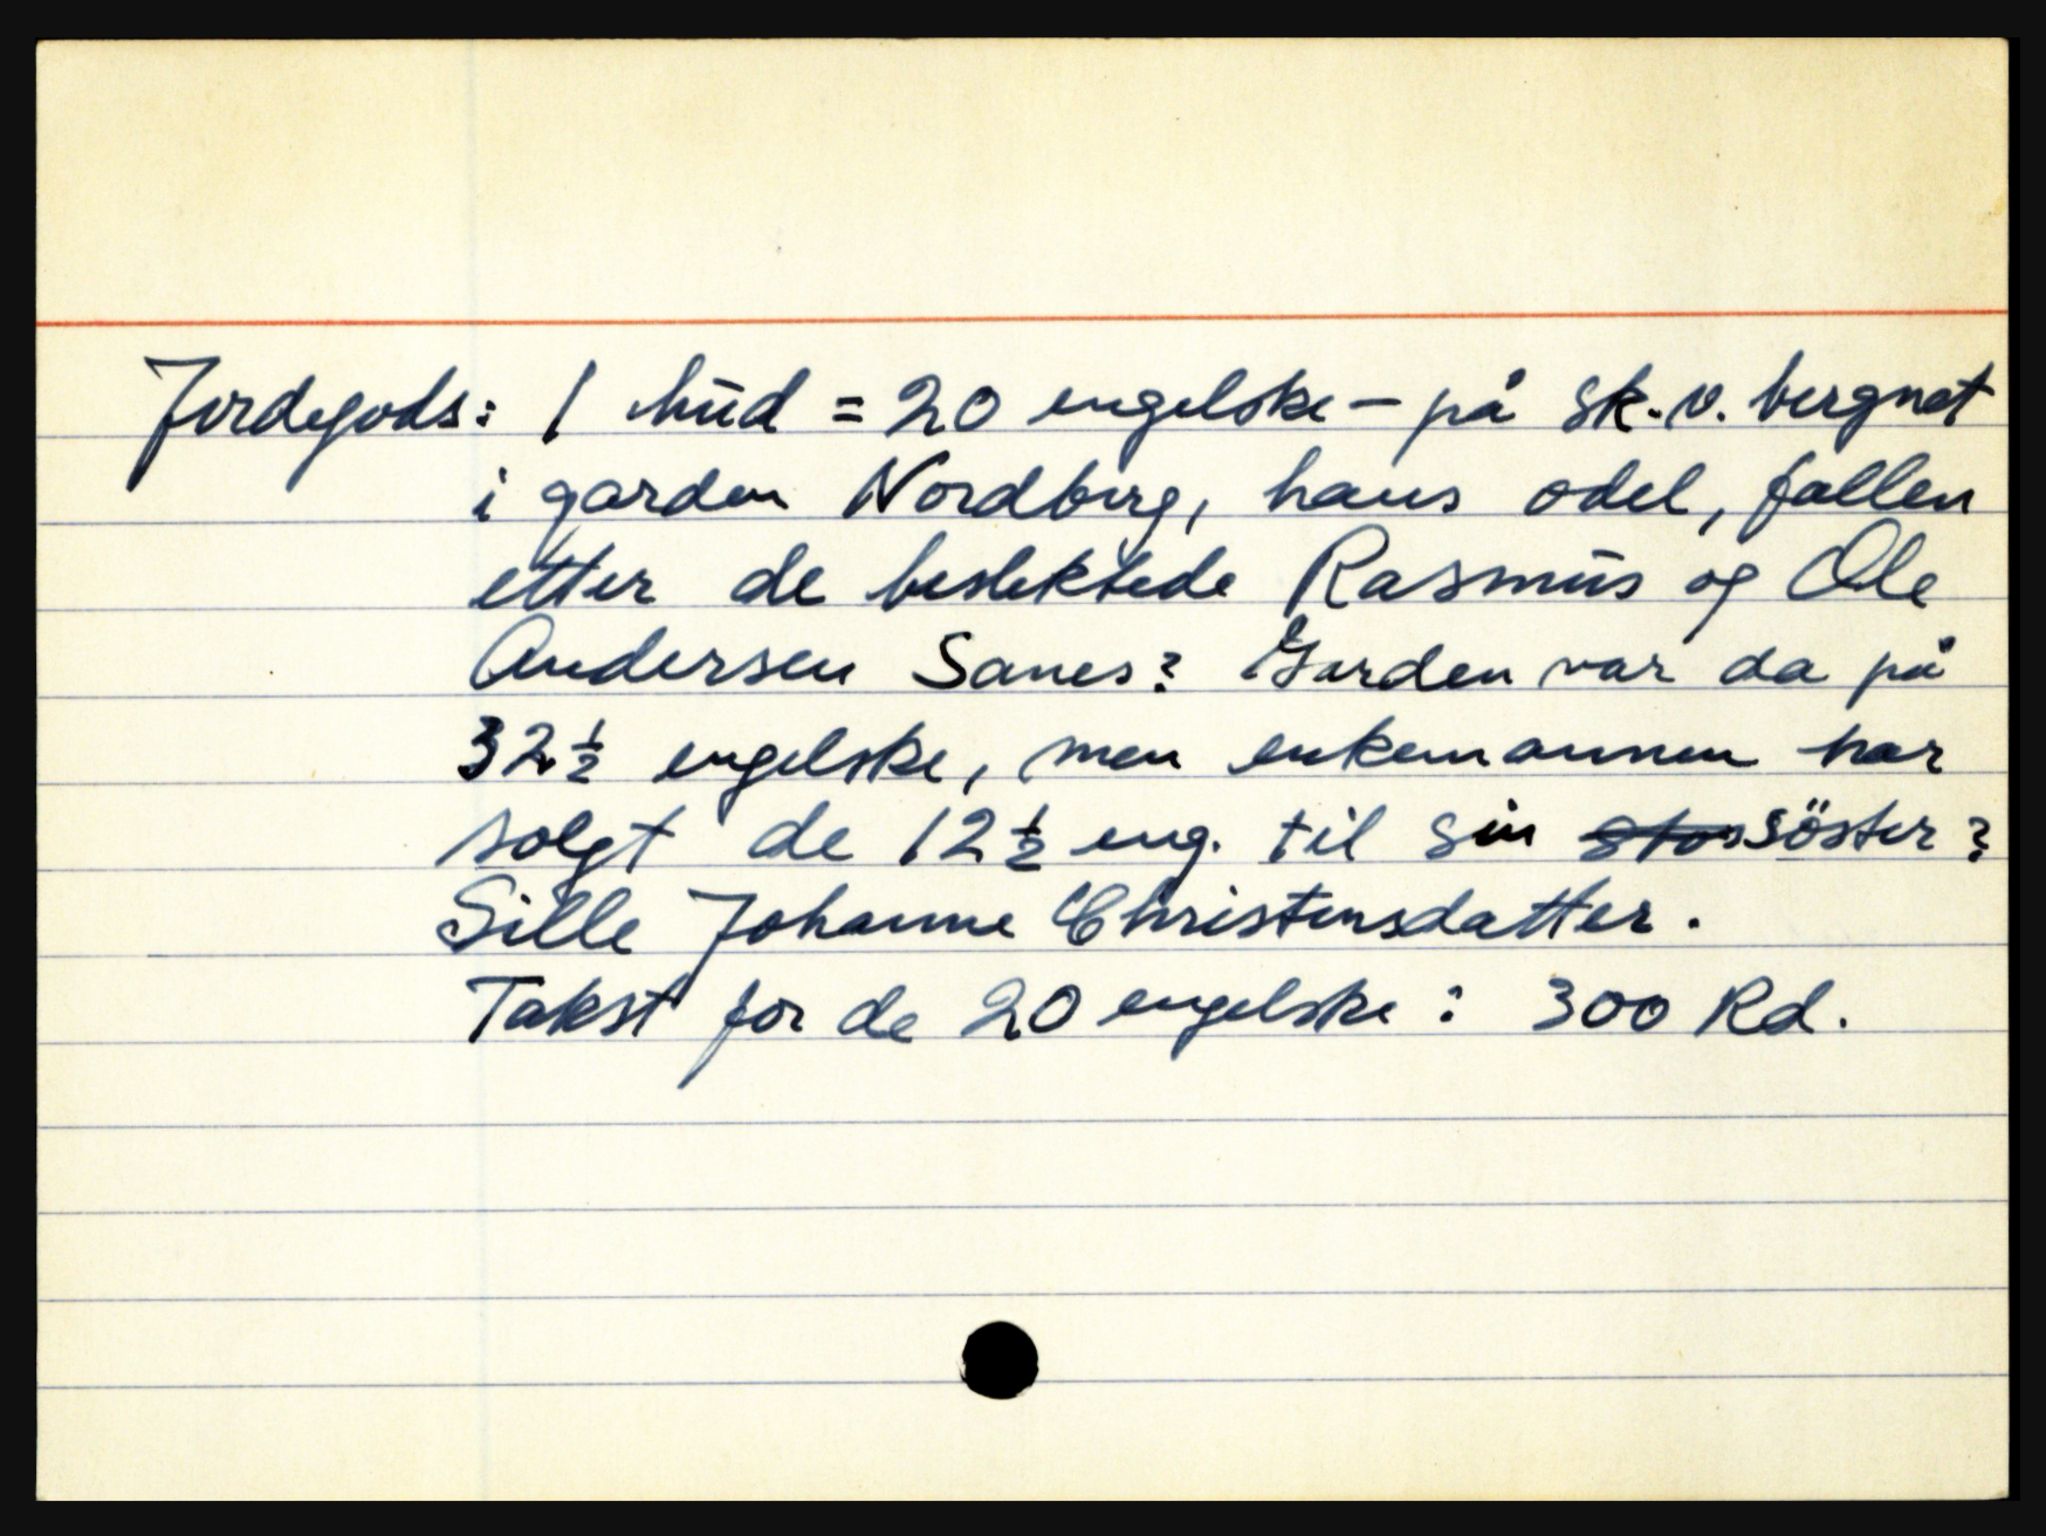 Jordegods: 1 hud = 20 engelske - på sk. v. bergnet
i garden Nordberg, hans odel, fallen
etter de beslektede Rasmus og Ole
Andersen Sanes? Garden var da på
32½ engelske, men enkemannen har
solgt de 12½ eng. til sin söster?
Sille Johanne Christensdatter.
Takst for de 20 engelske: 300 Rd.